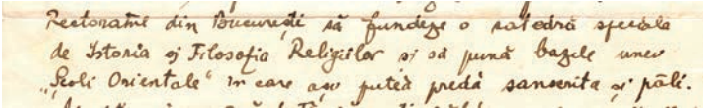 Rectoratul din București să fundeze o catedră specială
de Istoria și Filosofia Religiilor și să pună bazele unei
„Școli Orientale" în care așu putea predă sanscrita și pāli.